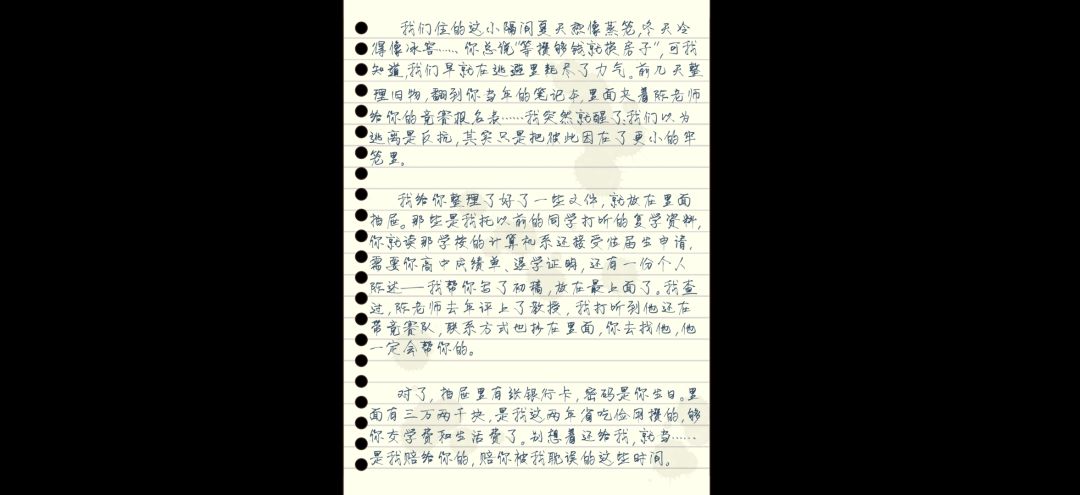 我们住的这小隔间夏天热像蒸笼,冬天冷
得像冰窖……你总说“等攒够钱就换房子”,可我
知道,我们早就在逃避里耗尽了力气。前几天整
理旧物,翻到你当年的笔记本,里面夹着陈老师
给你的竞赛报名表……我突然就醒了,我们以为
逃离是反抗,其实只是把彼此困在了更小的牢
笼里。
我给你整理了好了一些文件,就放在里面
抽屉。那些是我托以前的同学打听的复学资料,
你就读那学校的计算机系还接受往届生申请,
需要你高中成绩单、退学证明,还有一份个人
陈述——我帮你写了初稿,放在最上面了。我查
过,陈老师去年评上了教授,我打听到他还在
带竞赛队,联系方式也抄在里面,你去找他,他
一定会帮你的。
对了,抽屉里有张银行卡,密码是你生日。里
面有三万两千块,是我这两年省吃俭用攒的,够
你交学费和生活费了。别想着还给我,就当……
是我赔给你的,赔你被我耽误的这些时间。